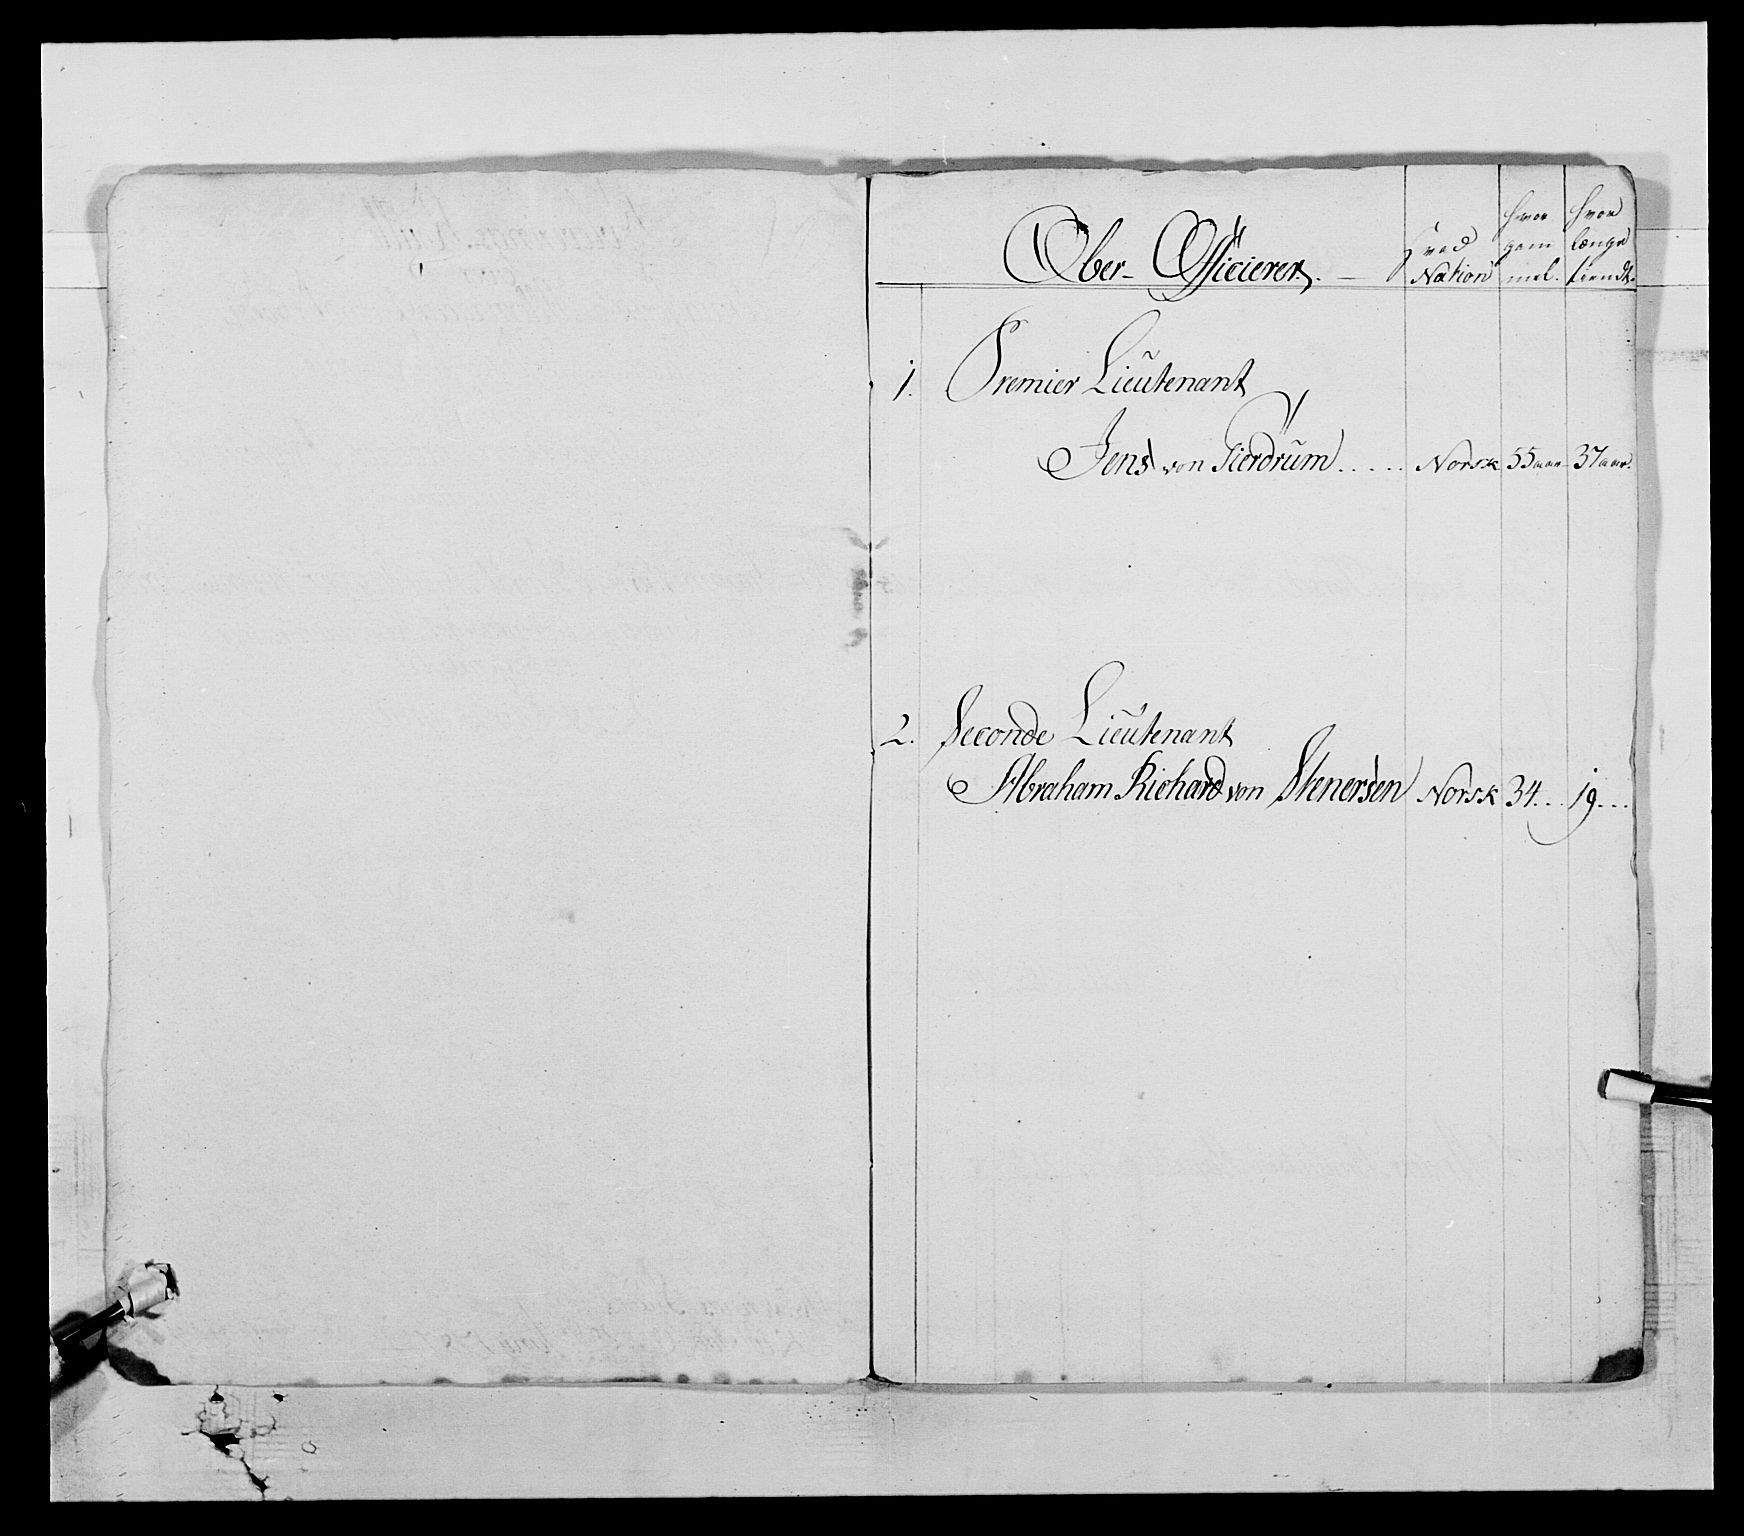 Ober-Officierer.
Hvad Nation
hvor gammel.
hvor længe tiendt.
1. Premier Lieutenant
Jens von Tierdrum..... Norsk 55 aar 37 aar.
2. Seconde Lieutenant
Abraham Richard von Stenersen Norsk 34... 19...